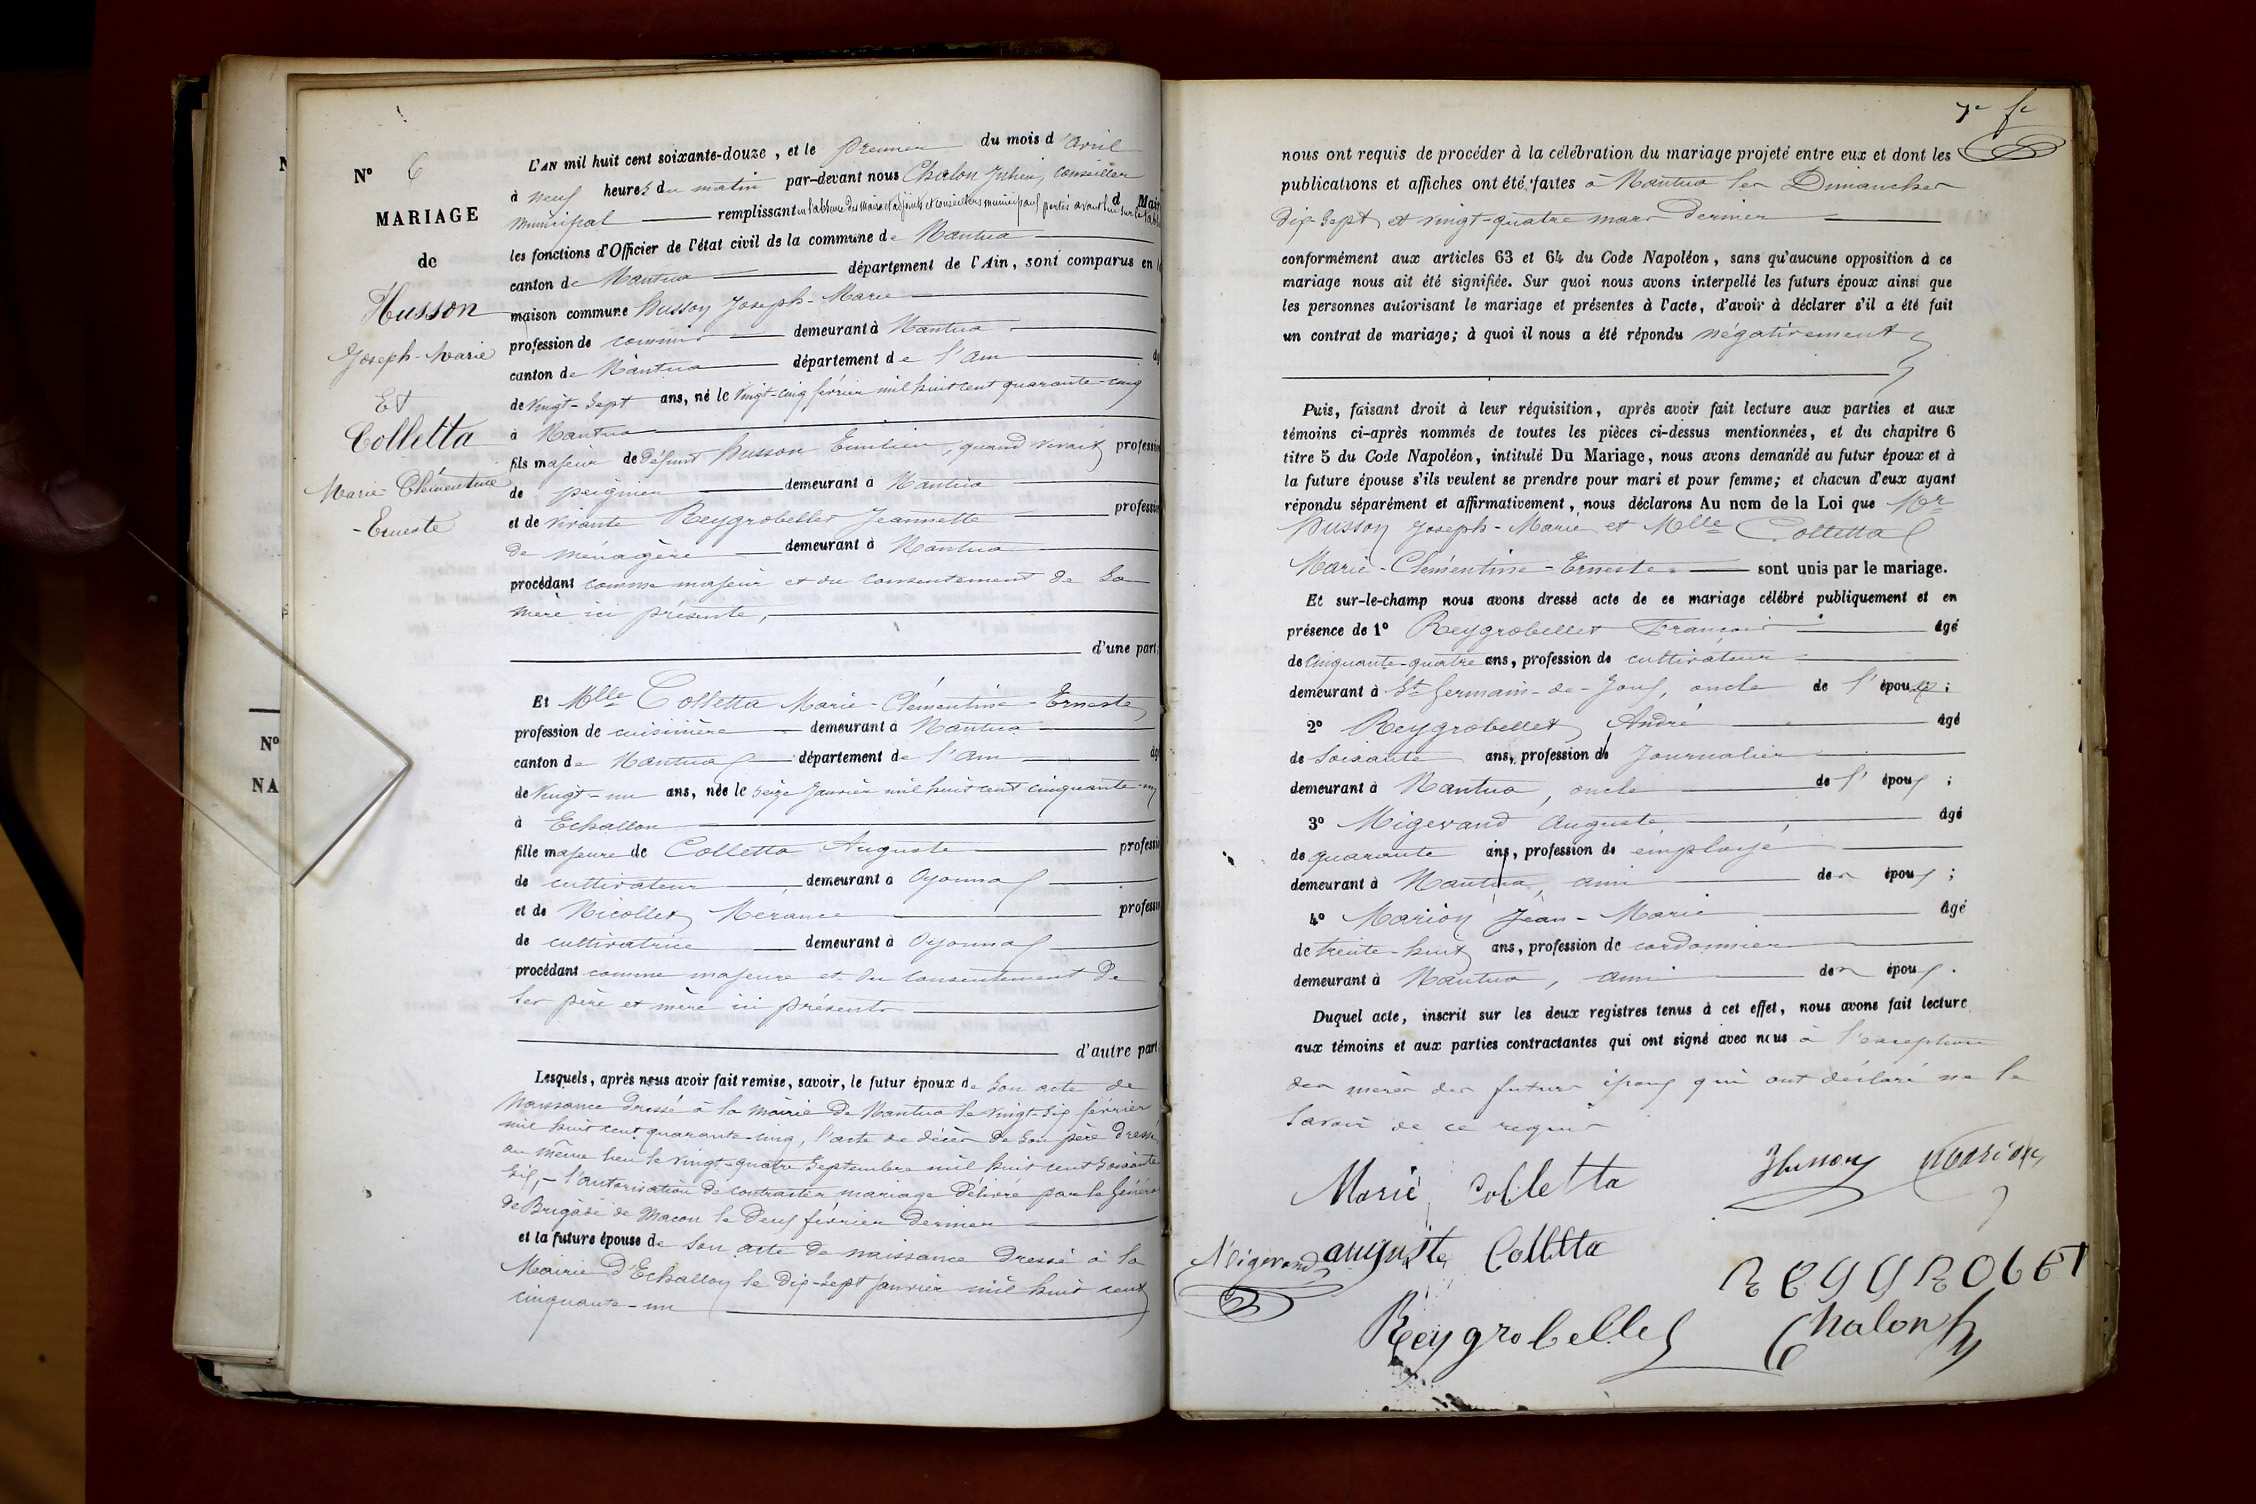 N° 6
MARIAGE
de
Husson
Joseph-Marie
Et
Colletta
Marie Clémentine
-Erneste
L'AN mil huit cent soixante-douze, et le premier du mois d'avril
à neuf heures du matin par-devant nous Chalon Julien, conseiller
municipal remplissant en l'absence des Maire et adjoints et conseillers municipaux portés avant lui sur le tab d Mair
les fonctions d'Officier de l'état civil de la commune de Nantua
canton de Nantua département de l'Ain, sont comparus en l
maison commune Husson Joseph-Marie
profession de commis demeurant à Nantua
canton de Nantua département de l'Ain âg
de vingt-sept ans, né le vingt-cinq février mil huit cent quarante-cinq
à Nantua
fils majeur de défunt Husson Emilien, quand vivait professio
de peignier demeurant à Nantua
et de vivante Reygrobellet Jeannette professio
de ménagère demeurant à Nantua
procédant comme majeur et du consentement de sa
mère ici présente,
d'une part;
Et Mlle Colletta Marie-Clémentine-Erneste
profession de cuisinière demeurant à Nantua
canton de Nantua département de l'Ain âg
de vingt-un ans, née le seize janvier mil huit cent cinquante-un
à Echallon
fille majeure de Colletta Auguste professio
de cultivateur demeurant à Oyonnax
et de Nicollet professio
de cultivatrice demeurant à Oyonnax
procédant comme majeure et du consentement de
ses père et mère ici présents
d'autre part
Lesquels, après nous avoir fait remise, savoir, le futur époux de son acte de
naissance dressé à la mairie de Nantua le vingt-six février
mil huit cent quarante-cinq, l'acte de décès de son père dressé
au même lieu le vingt-quatre septembre mil huit cent soixante
six, - l'autorisation de contracter mariage délivré par le Général
de Brigade de Macon le deux février dernier
et la future épouse de son acte de naissance dressé à la
Mairie d'Echallon le dix-sept janvier mil huit cent
cinquante-un
7e fe
nous ont requis de procéder à la célébration du mariage projeté entre eux et dont les
publications et affiches ont été faites à Nantua les Dimanches
dix-sept et vingt-quatre mars dernier
conformément aux articles 63 et 64 du Code Napoléon, sans qu'aucune opposition à ce
mariage nous ait été signifiée. Sur quoi nous avons interpellé les futurs époux ainsi que
les personnes autorisant le mariage et présentes à l'acte, d'avoir à déclarer s'il a été fait
un contrat de mariage; à quoi il nous a été répondu négativement
Puis, faisant droit à leur réquisition, après avoir fait lecture aux parties et aux
témoins ci-après nommés de toutes les pièces ci-dessus mentionnées, et du chapitre 6
titre 5 du Code Napoléon, intitulé Du Mariage, nous avons demandé au futur époux et à
la future épouse s'ils veulent se prendre pour mari et pour femme; et chacun d'eux ayant
répondu séparément et affirmativement, nous déclarons Au nom de la Loi que Mr
Husson Joseph-Marie et Mlle Colletta
Marie-Clémentine-Erneste sont unis par le mariage.
Et sur-le-champ nous avons dressé acte de ce mariage célébré publiquement et en
présence de 1° Reygrobellet François âgé
de cinquante-quatre ans, profession de cultivateur
demeurant à St Germain-de-Joux, oncle de l'époux;
2° Reygrobellet André âgé
de soixante ans, profession de journalier
demeurant à Nantua, oncle de l'époux;
3° Migerand Auguste âgé
de quarante ans, profession de employé
demeurant à Nantua, ami des époux;
4° Marion Jean-Marie âgé
de trente-huit ans, profession de cordonnier
demeurant à Nantua, ami des époux.
Duquel acte, inscrit sur les deux registres tenus à cet effet, nous avons fait lecture
aux témoins et aux parties contractantes qui ont signé avec nous à l'exception
des mères des futurs époux qui ont déclaré ne le
savoir de ce requis
Marie Colletta Husson Marion
Migerand auguste Colletta
REYGROBET
Reygrobellet Chalon
N°
NA